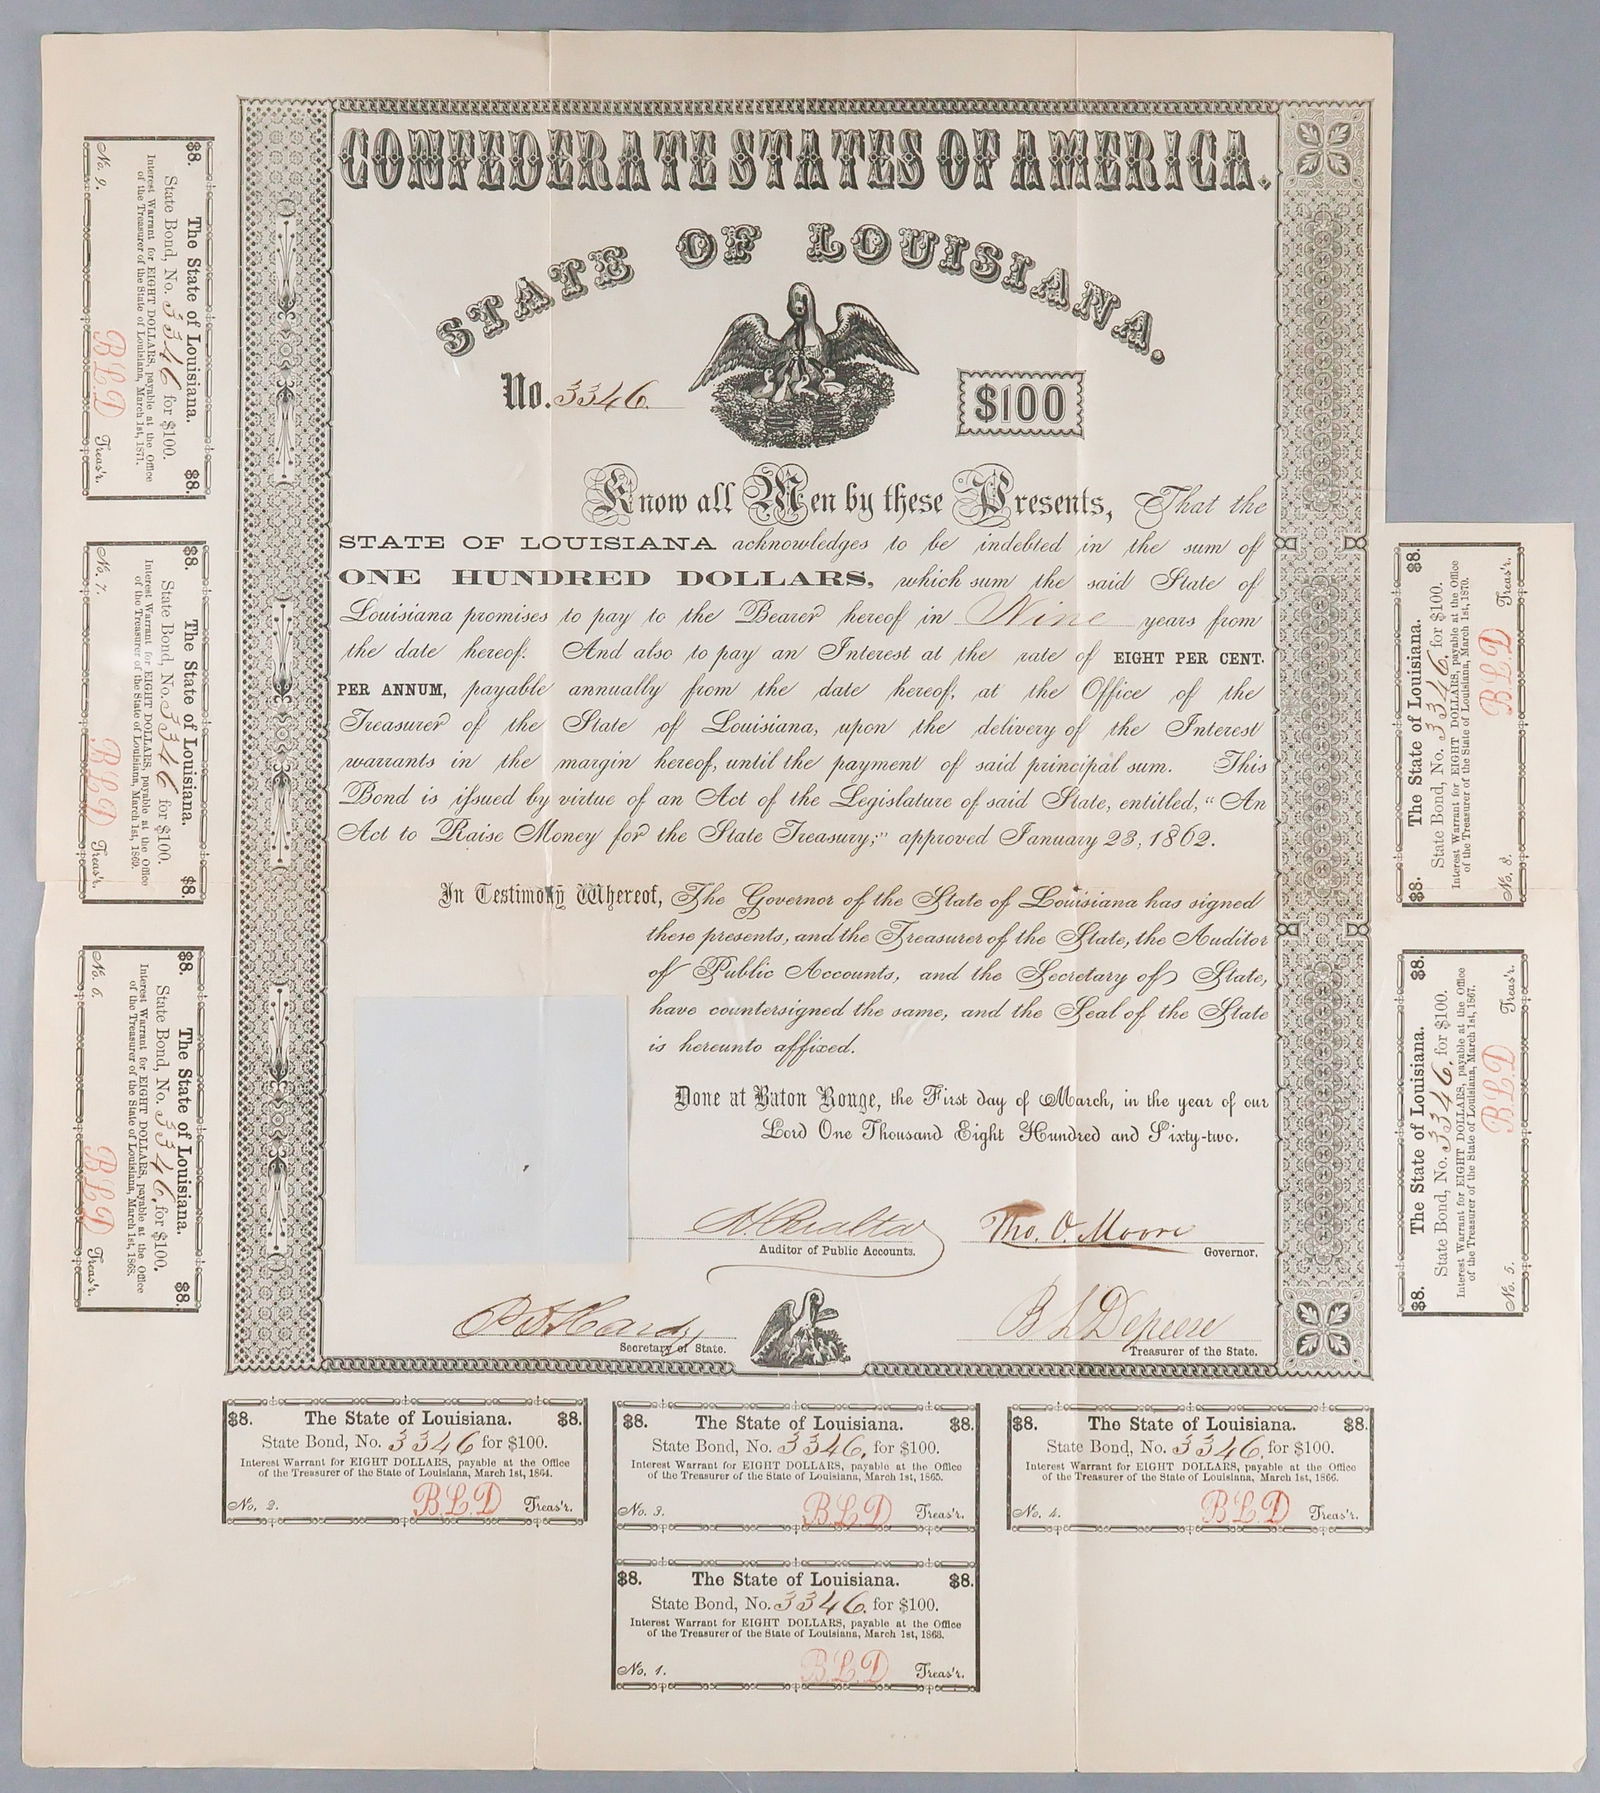 CONFEDERATE STATES OF AMERICA.
STATE OF LOUISIANA.
No. 3346.
$100
Know all Men by these Presents, That the
STATE OF LOUISIANA acknowledges to be indebted in the sum of
ONE HUNDRED DOLLARS, which sum the said State of
Louisiana promises to pay to the Bearer hereof in Nine years from
the date hereof. And also to pay an Interest at the rate of EIGHT PER CENT.
PER ANNUM, payable annually from the date hereof, at the Office of the
Treasurer of the State of Louisiana, upon the delivery of the Interest
warrants in the margin hereof, until the payment of said principal sum. This
Bond is issued by virtue of an Act of the Legislature of said State, entitled, "An
Act to Raise Money for the State Treasury;" approved January 23, 1862.
In Testimony Whereof, The Governor of the State of Louisiana has signed
these presents, and the Treasurer of the State, the Auditor
of Public Accounts, and the Secretary of State,
have countersigned the same, and the Seal of the State
is hereunto affixed.
Done at Baton Rouge, the First day of March, in the year of our
Lord One Thousand Eight Hundred and Sixty-two.
Tho. O. Moore
Auditor of Public Accounts.
Governor.
Secretary of State.
Treasurer of the State.
$8. The State of Louisiana. $8.
State Bond, No. 3346 for $100.
Interest Warrant for EIGHT DOLLARS, payable at the Office
of the Treasurer of the State of Louisiana, March 1st, 1871.
No. 9. B.L.D Treas'r.
$8. The State of Louisiana. $8.
State Bond, No. 3346 for $100.
Interest Warrant for EIGHT DOLLARS, payable at the Office
of the Treasurer of the State of Louisiana, March 1st, 1869.
No. 7. B.L.D Treas'r.
$8. The State of Louisiana. $8.
State Bond, No. 3346. for $100.
Interest Warrant for EIGHT DOLLARS, payable at the Office
of the Treasurer of the State of Louisiana, March 1st, 1868.
No. 6. B.L.D Treas'r.
$8. The State of Louisiana. $8.
State Bond, No. 3346. for $100.
Interest Warrant for EIGHT DOLLARS, payable at the Office
of the Treasurer of the State of Louisiana, March 1st, 1870.
No. 8. B.L.D Treas'r.
$8. The State of Louisiana. $8.
State Bond, No. 3346. for $100.
Interest Warrant for EIGHT DOLLARS, payable at the Office
of the Treasurer of the State of Louisiana, March 1st, 1867.
No. 5. B.L.D Treas'r.
$8. The State of Louisiana. $8.
State Bond, No. 3346 for $100.
Interest Warrant for EIGHT DOLLARS, payable at the Office
of the Treasurer of the State of Louisiana, March 1st, 1864.
No. 2. B.L.D Treas'r.
$8. The State of Louisiana. $8.
State Bond, No. 3346, for $100.
Interest Warrant for EIGHT DOLLARS, payable at the Office
of the Treasurer of the State of Louisiana, March 1st, 1865.
No. 3. B.L.D Treas'r.
$8. The State of Louisiana. $8.
State Bond, No. 3346. for $100.
Interest Warrant for EIGHT DOLLARS, payable at the Office
of the Treasurer of the State of Louisiana, March 1st, 1866.
No. 4. B.L.D Treas'r.
$8. The State of Louisiana. $8.
State Bond, No. 3346. for $100.
Interest Warrant for EIGHT DOLLARS, payable at the Office
of the Treasurer of the State of Louisiana, March 1st, 1863.
No. 1. B.L.D Treas'r.